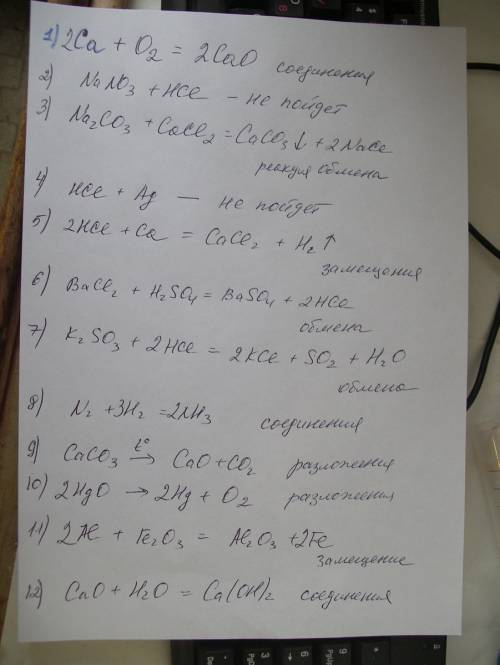 1) 2Ca + O₂ = 2CaO
соединения
2) NaNO₃ + HCl – не пойдет
3) Na₂CO₃ + CaCl₂ = CaCO₃↓ + 2NaCl
реакция обмена
4) HCl + Ag — не пойдет
5) 2HCl + Ca = CaCl₂ + H₂↑
замещения
6) BaCl₂ + H₂SO₄ = BaSO₄ + 2HCl
обмена
7) K₂SO₃ + 2HCl = 2KCl + SO₂ + H₂O
обмена
8) N₂ + 3H₂ = 2NH₃ соединения
9) CaCO₃ t° → CaO + CO₂ разложения
10) 2HgO → 2Hg + O₂ разложения
11) 2Al + Fe₂O₃ = Al₂O₃ + 2Fe
замещение
12) CaO + H₂O = Ca(OH)₂ соединения